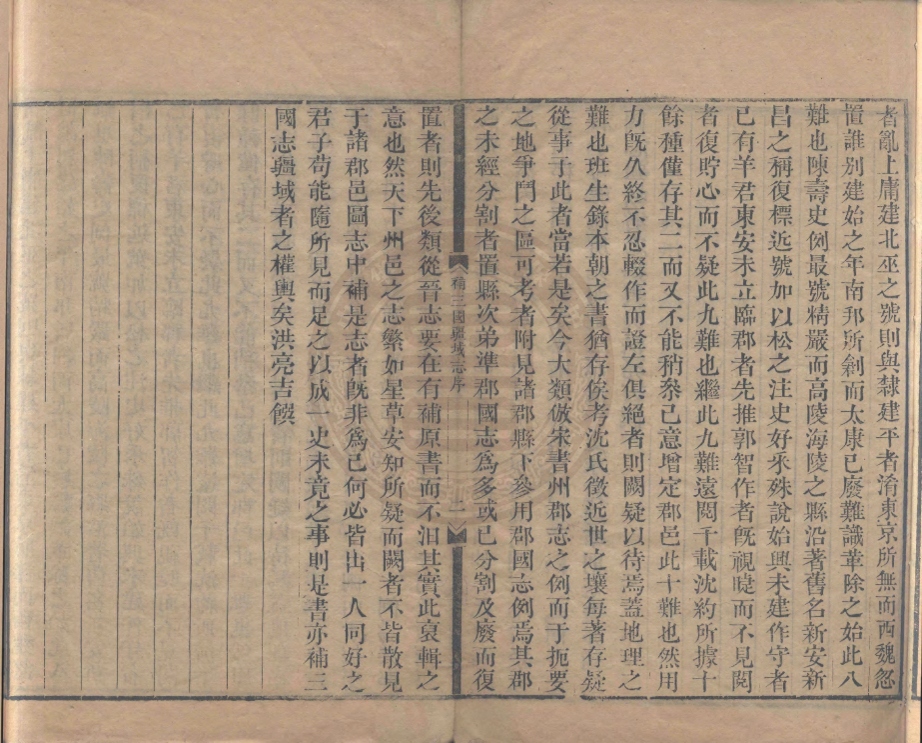 者亂上庸建北巫之號則與隸建平者淆東京所無而西魏忽
置誰別建始之年南邦所剏而太康已廢難識革除之始此八
難也陳壽史例最號精嚴而高陵海陵之縣沿著舊名新安新
昌之稱復標近號加以松之注史好釆殊說始興未建作守者
已有羊君東安未立臨郡者先推郭智作者旣視曀而不見閱
者復貯心而不疑此九難也繼此九難遠閱千載沈約所據十
餘種僅存其二而又不能稍叅己意增定郡邑此十難也然用
力旣久終不忍輟作而證左俱絕者則闕疑以待焉葢地理之
難也班生錄本朝之書猶存俟考沈氏徵近世之壤每著存疑
從事于此者當若是矣今大類倣宋書州郡志之例而于扼要
之地爭鬥之區可考者附見諸郡縣下參用郡國志例焉其郡
之未經分割者置縣次弟準郡國志爲多或已分割及廢而復
補三國疆域志序
二
置者則先後類從晉志要在有補原書而不汩其實此裒輯之
意也然天下州邑之志繁如星草安知所疑而闕者不皆散見
于諸郡邑圖志中補是志者旣非爲己何必皆出一人同好之
君子苟能隨所見而足之以成一史未竟之事則是書亦補三
國志疆域者之權輿矣洪亮吉譔